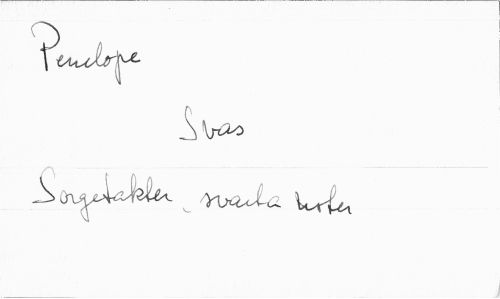 Penelope
Svas
Sorgetakter, svarta noter